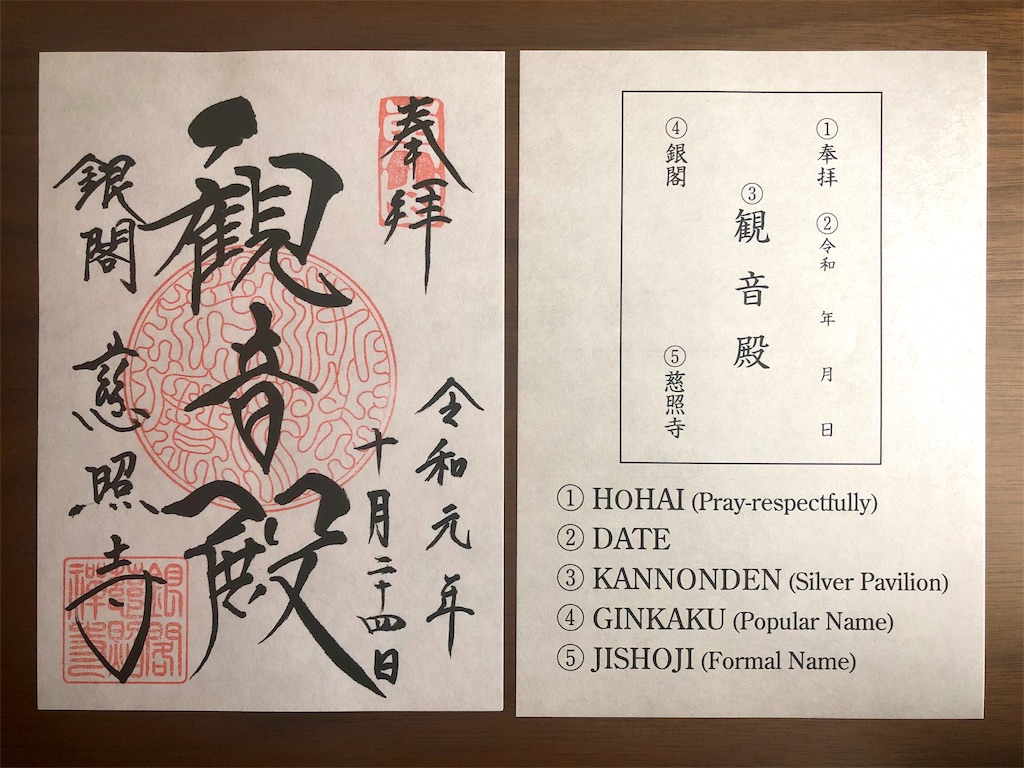 奉拝
令和元年
十月二十四日
観音殿
銀閣
慈照寺
①奉拝 ②令和 年 月 日
③観音殿
④銀閣 ⑤慈照寺
① HOHAI (Pray-respectfully)
② DATE
③ KANNONDEN (Silver Pavilion)
④ GINKAKU (Popular Name)
⑤ JISHOJI (Formal Name)